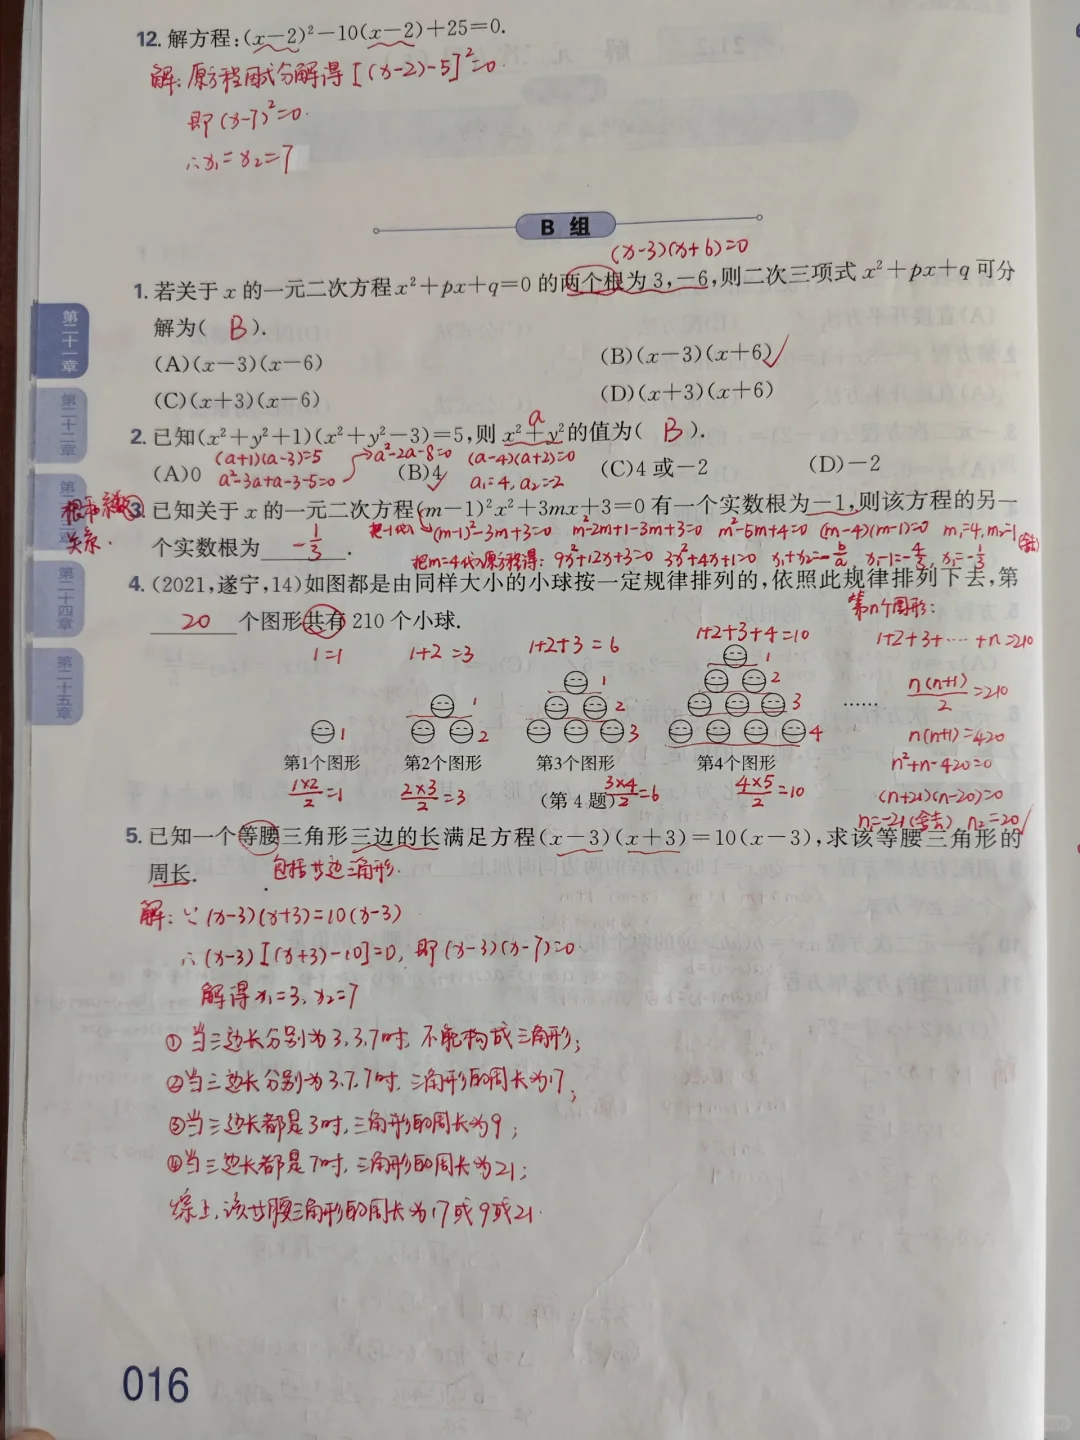 12. 解方程:(x-2)²-10(x-2)+25=0.
解:原方程因式分解得[(x-2)-5]²=0.
即(x-7)²=0.
∴x₁=x₂=7
B 组
(x-3)(x+6)=0
1. 若关于 x 的一元二次方程x²+px+q=0 的两个根为 3,-6,则二次三项式 x²+px+q 可分
解为( B ).
(A)(x-3)(x-6) (B)(x-3)(x+6)√
(C)(x+3)(x-6) (D)(x+3)(x+6)
a
2. 已知(x²+y²+1)(x²+y²-3)=5,则 x²+y²的值为( B ).
(a+1)(a-3)=5 a²-2a-8=0 (a-4)(a+2)=0
(A)0 (B)4 (C)4 或-2 (D)-2
a²-3a+a-3-5=0 a₁=4, a₂=-2
根和系数
3. 已知关于 x 的一元二次方程(m-1)²x²+3mx+3=0 有一个实数根为-1,则该方程的另一
关系.
把-1代入 (m-1)²-3m+3=0 m²-2m+1-3m+3=0 m²-5m+4=0 (m-4)(m-1)=0 m₁=4, m₂=1(舍去)
个实数根为 -1/3 .
把m=4代入原方程得: 9x²+12x+3=0 3x²+4x+1=0 x₁+x₂=-b/a x₁-1=-4/3, x₁=-1/3
4. (2021,遂宁,14)如图都是由同样大小的小球按一定规律排列的,依照此规律排列下去,第
20 个图形共有 210 个小球.
第n个图形:
1=1 1+2=3 1+2+3=6 1+2+3+4=10 1+2+3+…+n=210
1 1 2 1 2 3 1 2 3 4 ……
n(n+1)/2=210
n(n+1)=420
第1个图形 第2个图形 第3个图形 第4个图形
n²+n-420=0
1×2/2=1 2×3/2=3 3×4/2=6 4×5/2=10
(第 4 题)
(n+21)(n-20)=0
n₁=-21(舍去) n₂=20√
5. 已知一个等腰三角形三边的长满足方程(x-3)(x+3)=10(x-3),求该等腰三角形的
周长.
包括等边三角形.
解:∵(x-3)(x+3)=10(x-3)
∴(x-3)[(x+3)-10]=0, 即(x-3)(x-7)=0
解得x₁=3, x₂=7
①当三边长分别为3,3,7时, 不能构成三角形;
②当三边长分别为3,7,7时, 三角形的周长为17;
③当三边长都是3时,三角形的周长为9;
④当三边长都是7时,三角形的周长为21;
综上,该等腰三角形的周长为17或9或21.
第二十一章
第二十二章
第二十四章
第二十五章
016